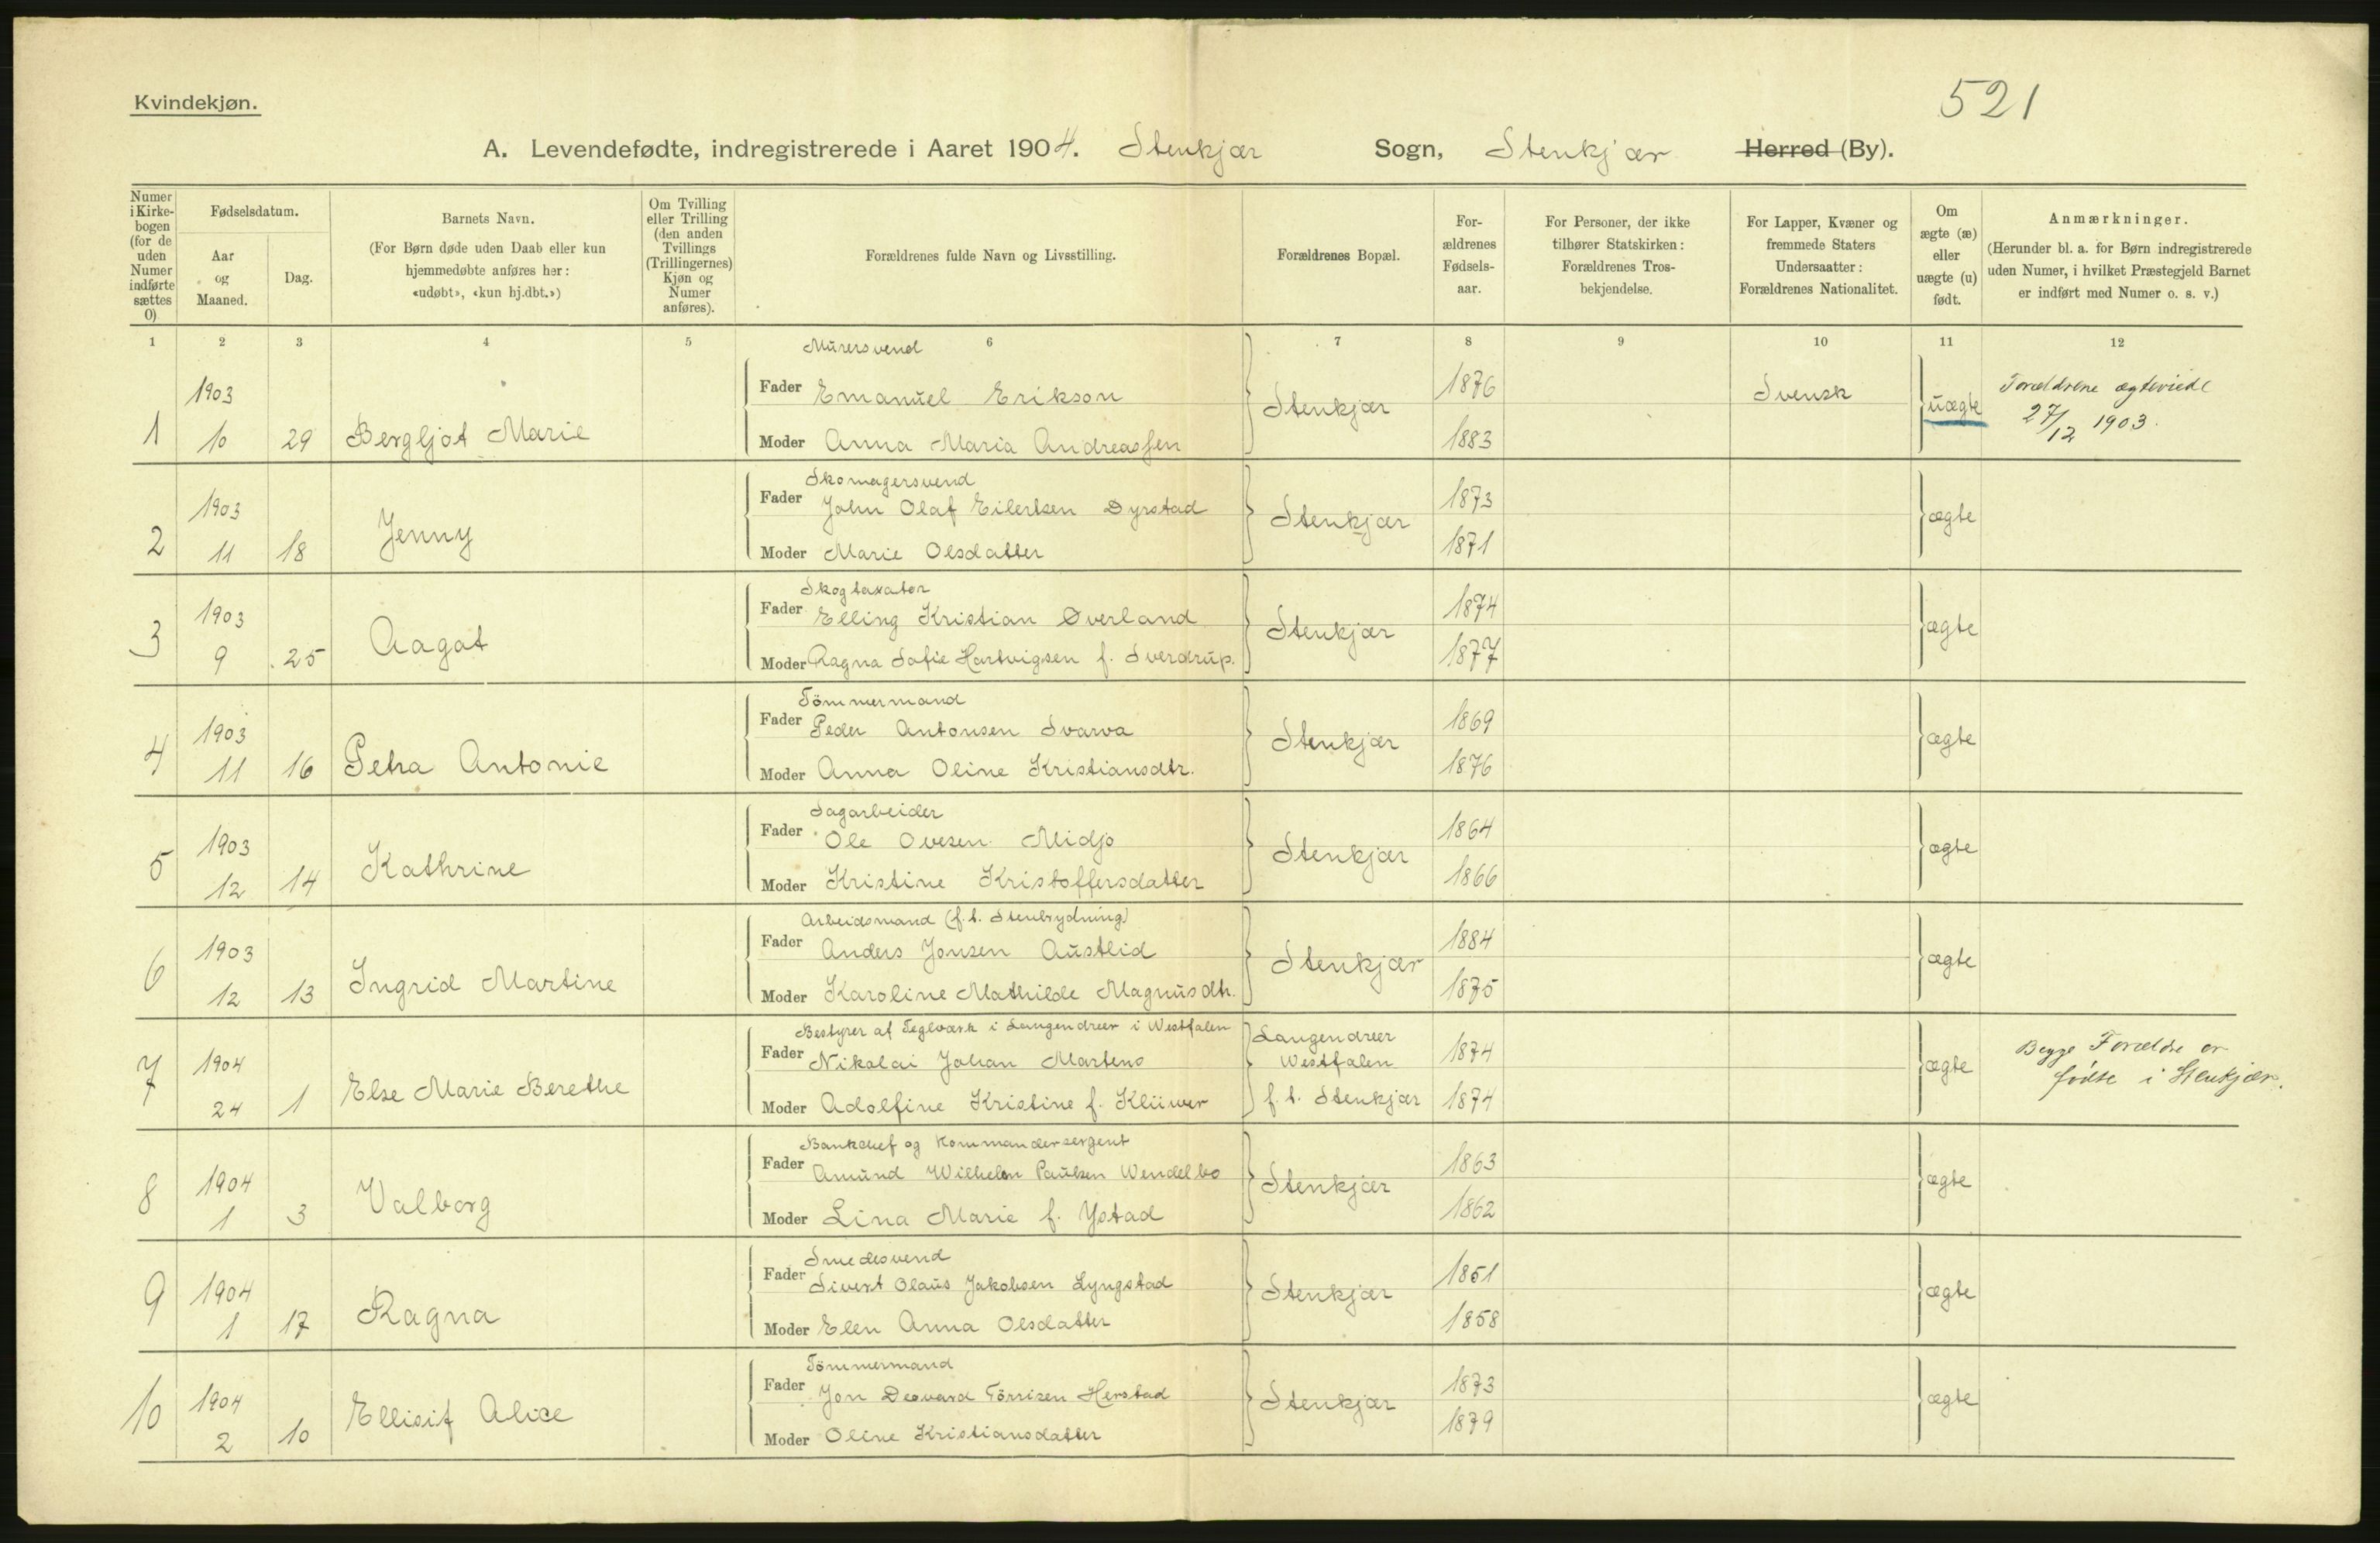 521
Kvindekjøn.
A. Levendefødte, indregistrerede i Aaret 1904. Stenkjær Sogn, Stenkjær Herred (By).
Numer i Kirkebogen (for de uden Numer indførte sættes 0)
Fødselsdatum.
Aar og Maaned.
Dag.
Barnets Navn.
(For Børn døde uden Daab eller kun hjemmedøbte anføres her: «udøbt», «kun hj.dbt.»)
Om Tvilling eller Trilling (den anden Tvillings (Trillingernes) Kjøn og Numer anføres).
Forældrenes fulde Navn og Livsstilling.
Forældrenes Bopæl.
For-ældrenes Fødsels-aar.
For Personer, der ikke tilhører Statskirken: Forældrenes Tros-bekjendelse.
For Lapper, Kvæner og fremmede Staters Undersaatter: Forældrenes Nationalitet.
Om ægte (æ) eller uægte (u) født.
Anmærkninger.
(Herunder bl. a. for Børn indregistrerede uden Numer, i hvilket Præstegjeld Barnet er indført med Numer o. s. v.)
1 2 3 4 5 6 7 8 9 10 11 12
Murersvend
1903 Fader Emanuel Erikson Stenkjær 1876 Svensk uægte Forældrene ægteviede
1 10 29 Bergljot Marie Moder Anna Maria Andreassen 1883 27/12 1903.
Skomagersvend
1903 Fader John Olaf Eilertsen Dyrstad Stenkjær 1873 ægte
2 11 18 Jenny Moder Marie Olsdatter 1871
Skogtaxator
1903 Fader Elling Kristian Øverland Stenkjær 1874 ægte
3 9 25 Aagot Moder Ragna Sofie Hartvigsen f. Sverdrup. 1877
Tömmermand
1903 Fader Peder Antonsen Svarva Stenkjær 1869 ægte
4 11 16 Petra Antonie Moder Anna Oline Kristiansdtr. 1876
Sagarbeider
1903 Fader Ole Ovesen Midjo Stenkjær 1864 ægte
5 12 14 Kathrine Moder Kristine Kristoffersdatter 1866
Arbeidsmand (f. t. Stenbrydning)
1903 Fader Anders Jonsen Austlid Stenkjær 1884 ægte
6 12 13 Ingrid Martine Moder Karoline Mathilde Magnusdtr. 1875
Bestyrer af Teglværk i Langendreer i Westfalen Langendreer
1904 Fader Nikolai Johan Martens Westfalen 1874 ægte Begge Forældre er
7 24 1 Else Marie Berethe Moder Adolfine Kristine f. Klüwer f. t. Stenkjær 1874 fødte i Stenkjær.
Bankchef og Kommandersergent
1904 Fader Amund Wilhelm Paulsen Wendelbo Stenkjær 1863 ægte
8 1 3 Valborg Moder Lina Marie f. Ystad 1862
Smedesvend
1904 Fader Sivert Olaus Jakobsen Lyngstad Stenkjær 1851 ægte
9 1 17 Ragna Moder Elen Anna Olsdatter 1858
Tömmermand
1904 Fader Jon Desvard Törrisen Herstad Stenkjær 1873 ægte
10 2 10 Ellisif Alice Moder Oline Kristiansdatter 1879